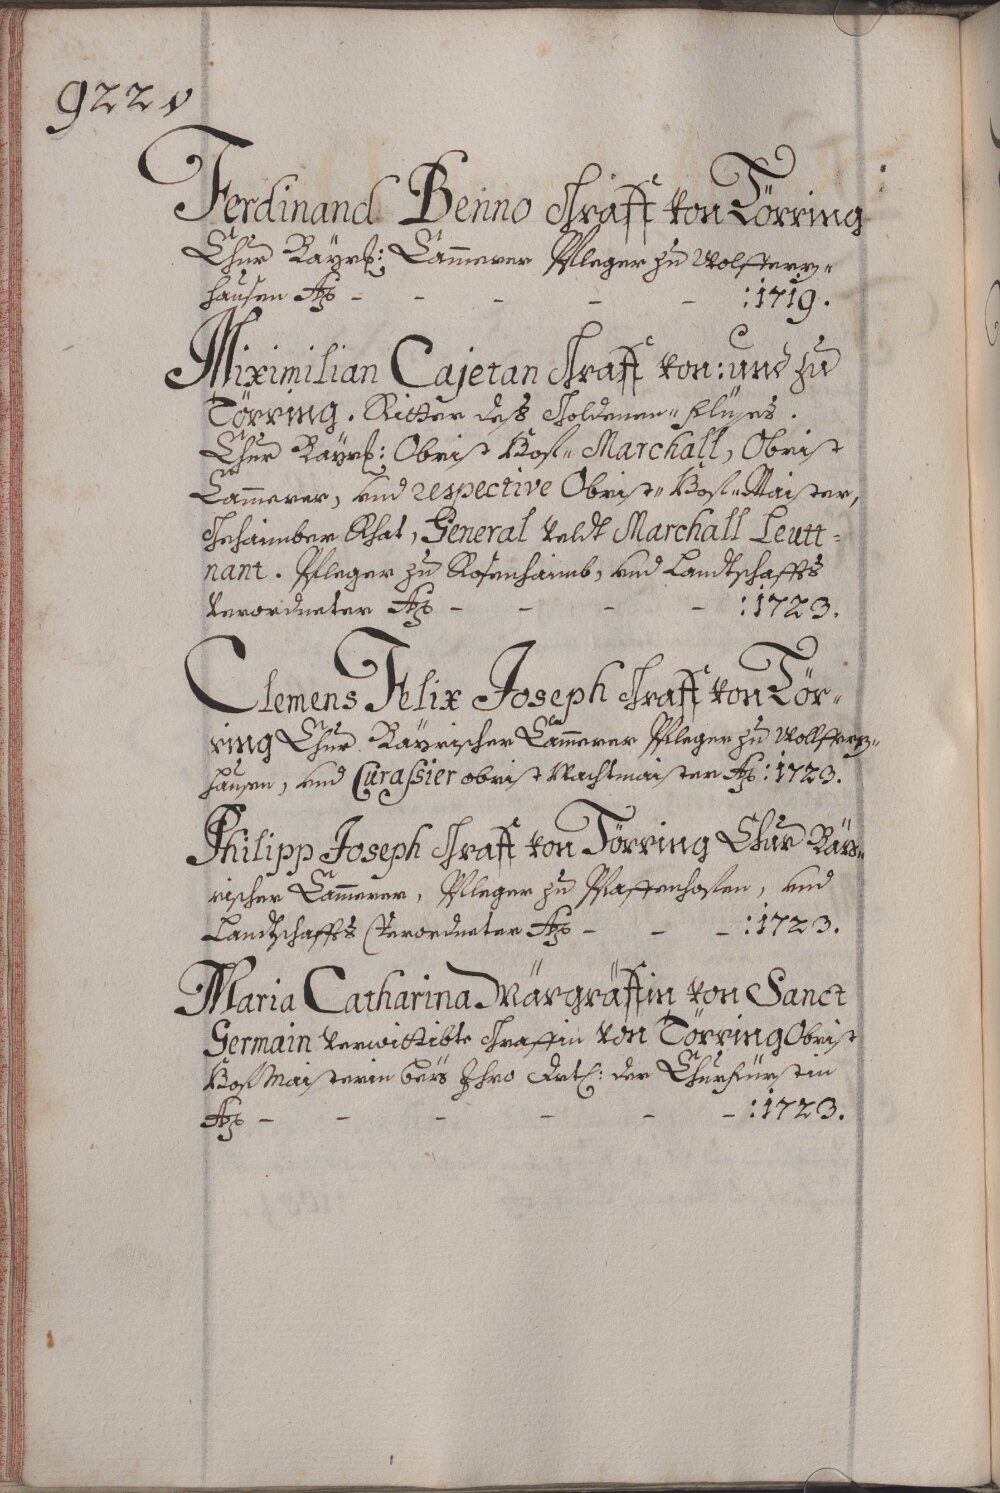 922v
Ferdinand Benno Graff von Törring
Chur Bayrl: Cammerer Pfleger zu Wolfferz=
hausen Ao - - - - - :1719.
Miximilian Cajetan Graff von: und zu
Törring. Ritter deß Goldenen= flüses.
Chur Bayrl: Obrist Hof= Marchall, Obrist
Cammerer, und respective Obrist= Hof= Maister,
Gehaimber Rhat, General Veldt Marchall Leutt=
nant. Pfleger zu Rosenhaimb, und Landtschaffts
Verordneter Ao - - - - :1723.
Clemens Felix Joseph Graff von Tör=
ring Chur Bayrischer Cammerer Pfleger zu Wolfferz=
hausen, und Curassier obrist Wachtmaister Ao :1723.
Philipp Joseph Graff von Törring Chur Bäy=
rischer Cammerer, Pfleger zu Pfaffenhofen, und
Landtschaffts Verordneter Ao - - - :1723.
Maria Catharina Märgräffin von Sanct
Germain verwittibte Graffin von Törring Obrist
Hof Maisterin beÿ Ihro Drtl: der Churfürstin
Ao - - - - - - :1723.